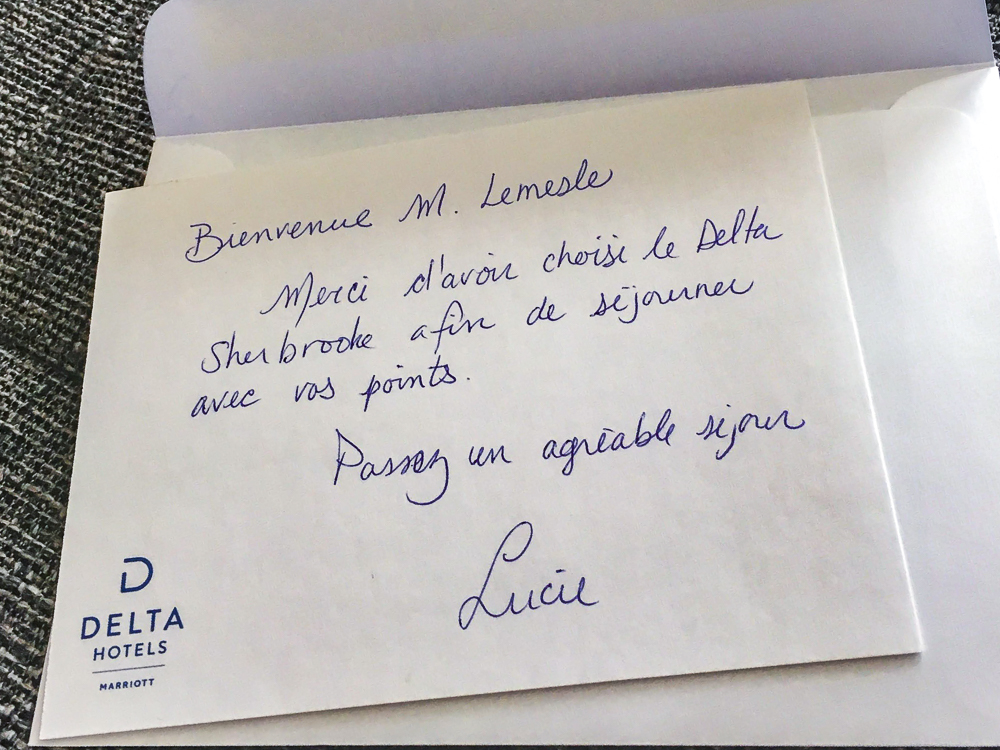 Bienvenue M. Lemesle
Merci d'avoir choisi le Delta
Sherbrooke afin de séjourner
avec vos points.
Passez un agréable séjour
Lucie
D
DELTA
HOTELS
MARRIOTT